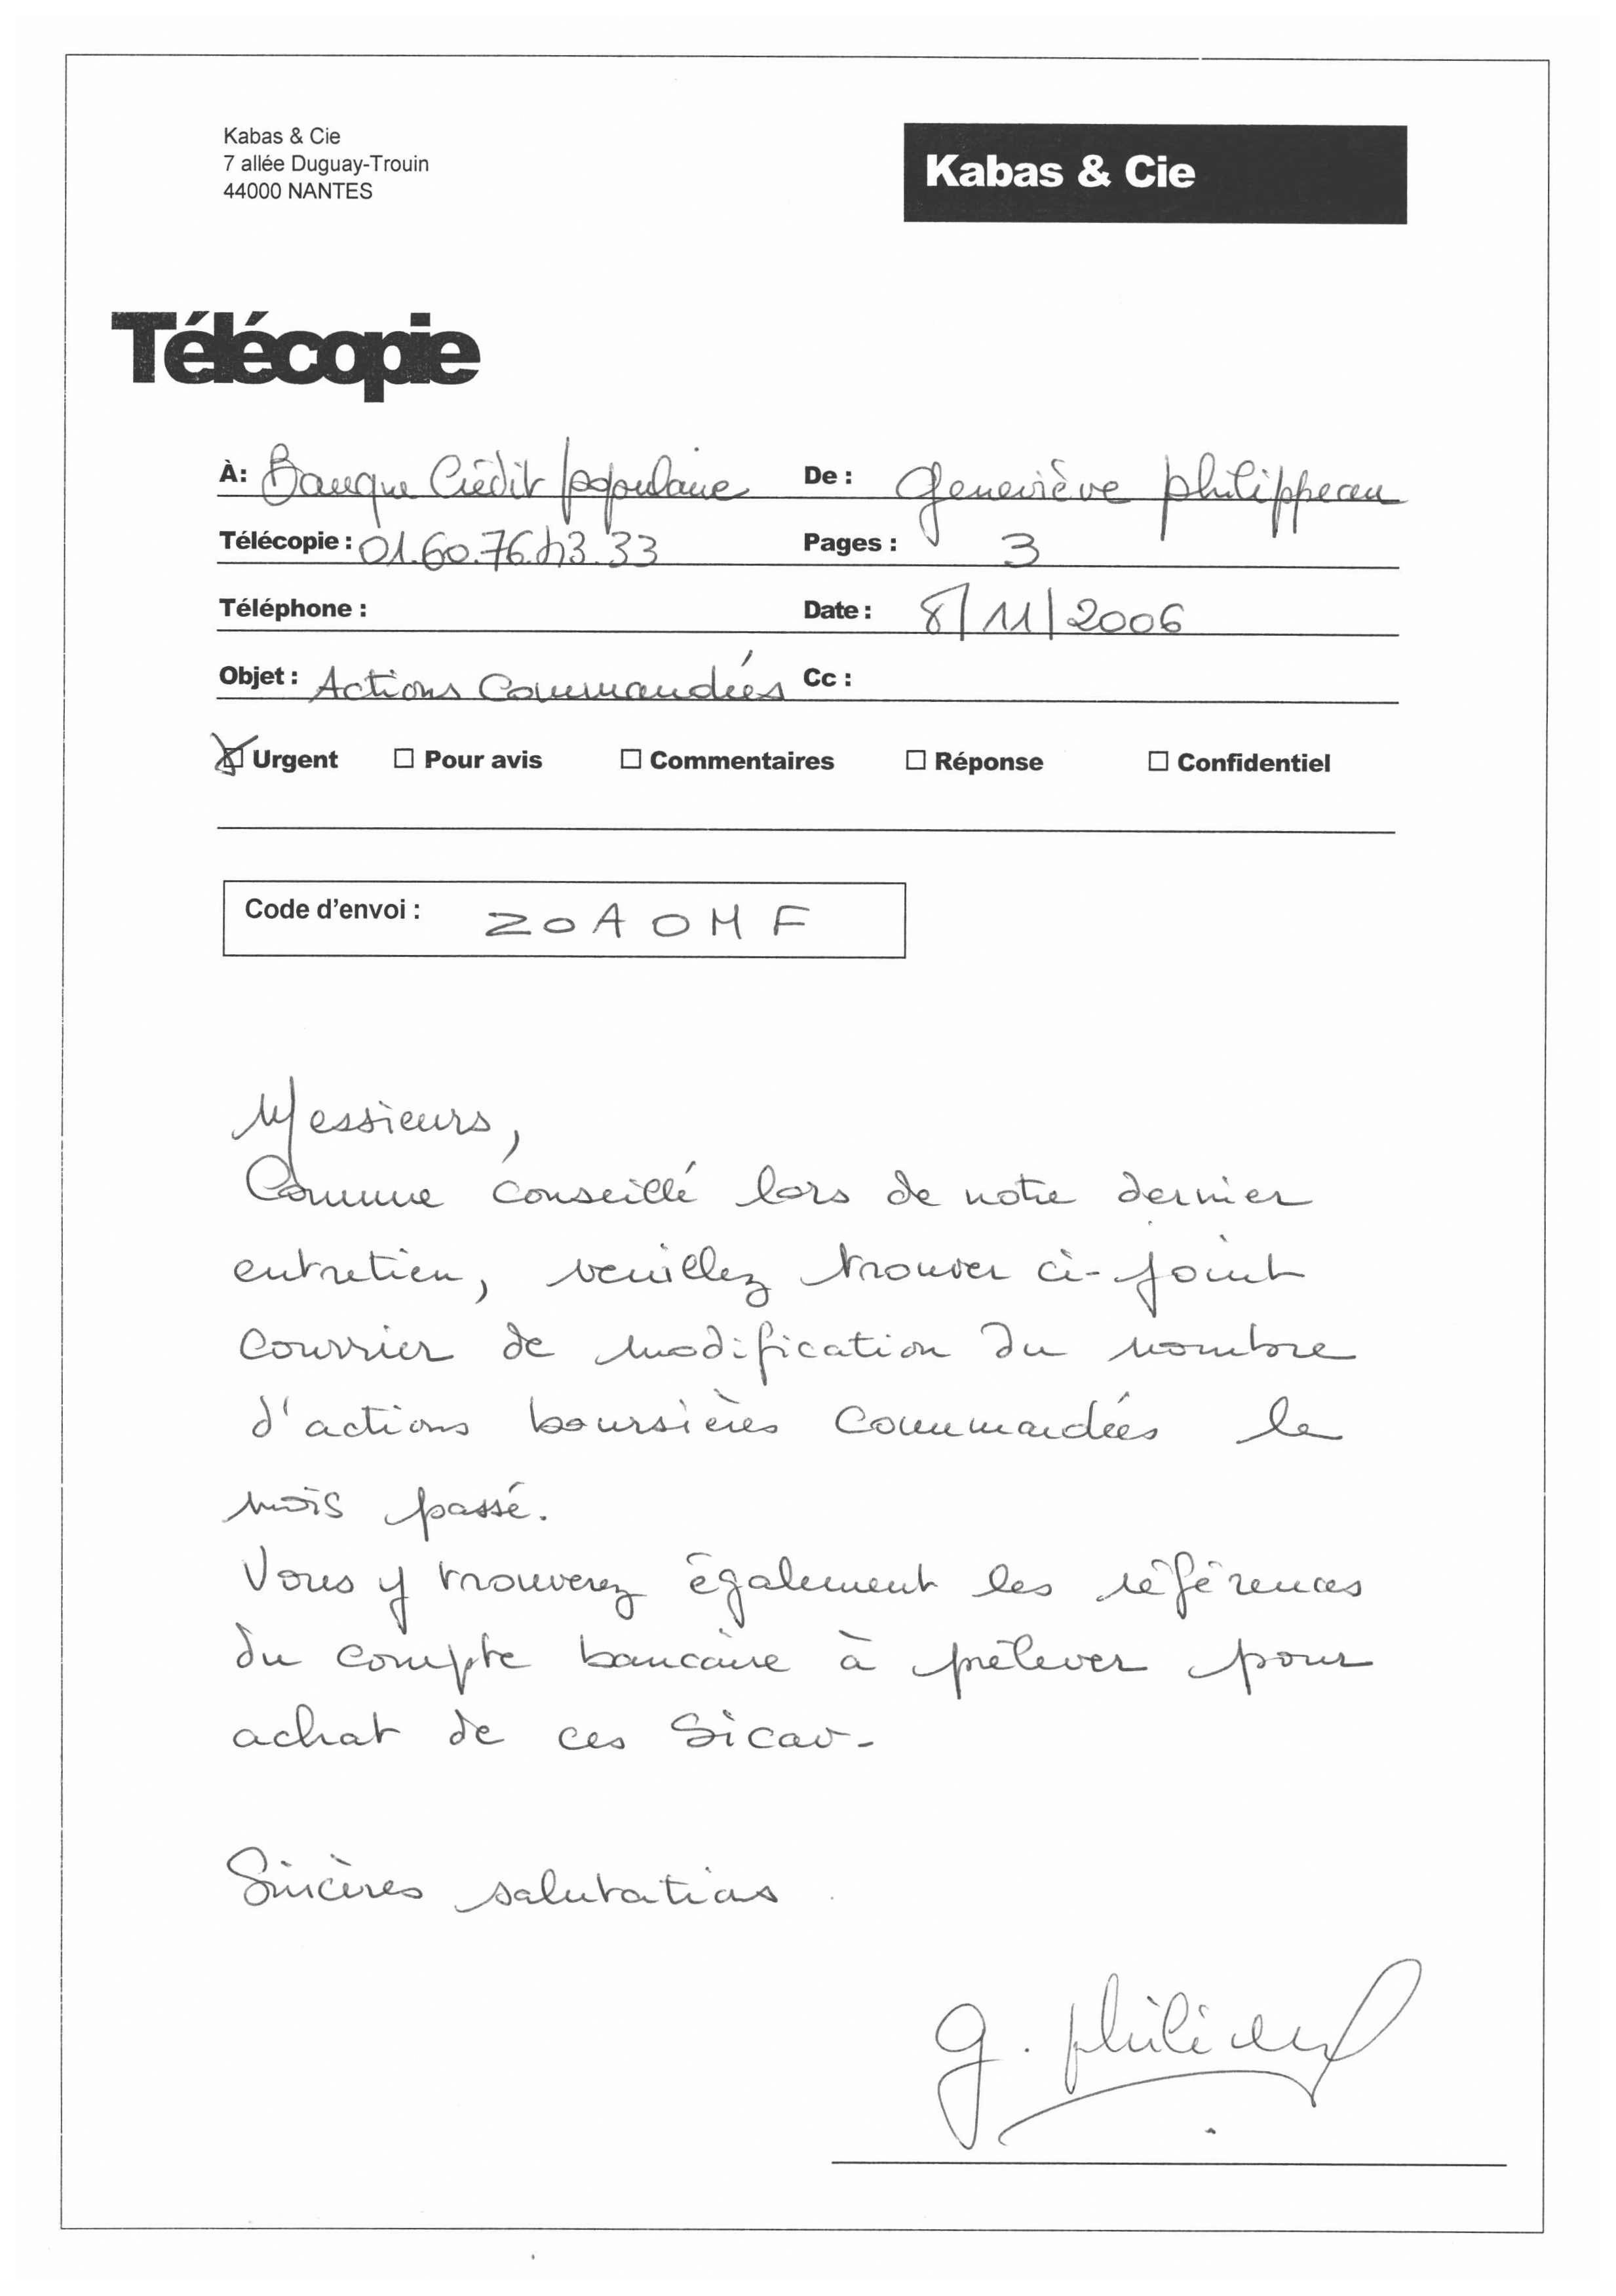 Kabas & Cie
7 allée Duguay-Trouin
44000 NANTES
Kabas & Cie
Télécopie
À: Banque Crédit populaire De : Geneviève Philippeau
Télécopie : 01.60.76.43.33 Pages : 3
Téléphone : Date : 8/11/2006
Objet : Actions Commandées Cc :
Urgent Pour avis Commentaires Réponse Confidentiel
Code d'envoi : ZOAOMF
Messieurs,
Comme conseillé lors de notre dernier
entretien, veuillez trouver ci-joint
courrier de modification du nombre
d'actions boursières commandées le
mois passé.
Vous y trouverez également les références
du compte bancaire à prélever pour
achat de ces Sicav-
Sincères salutations